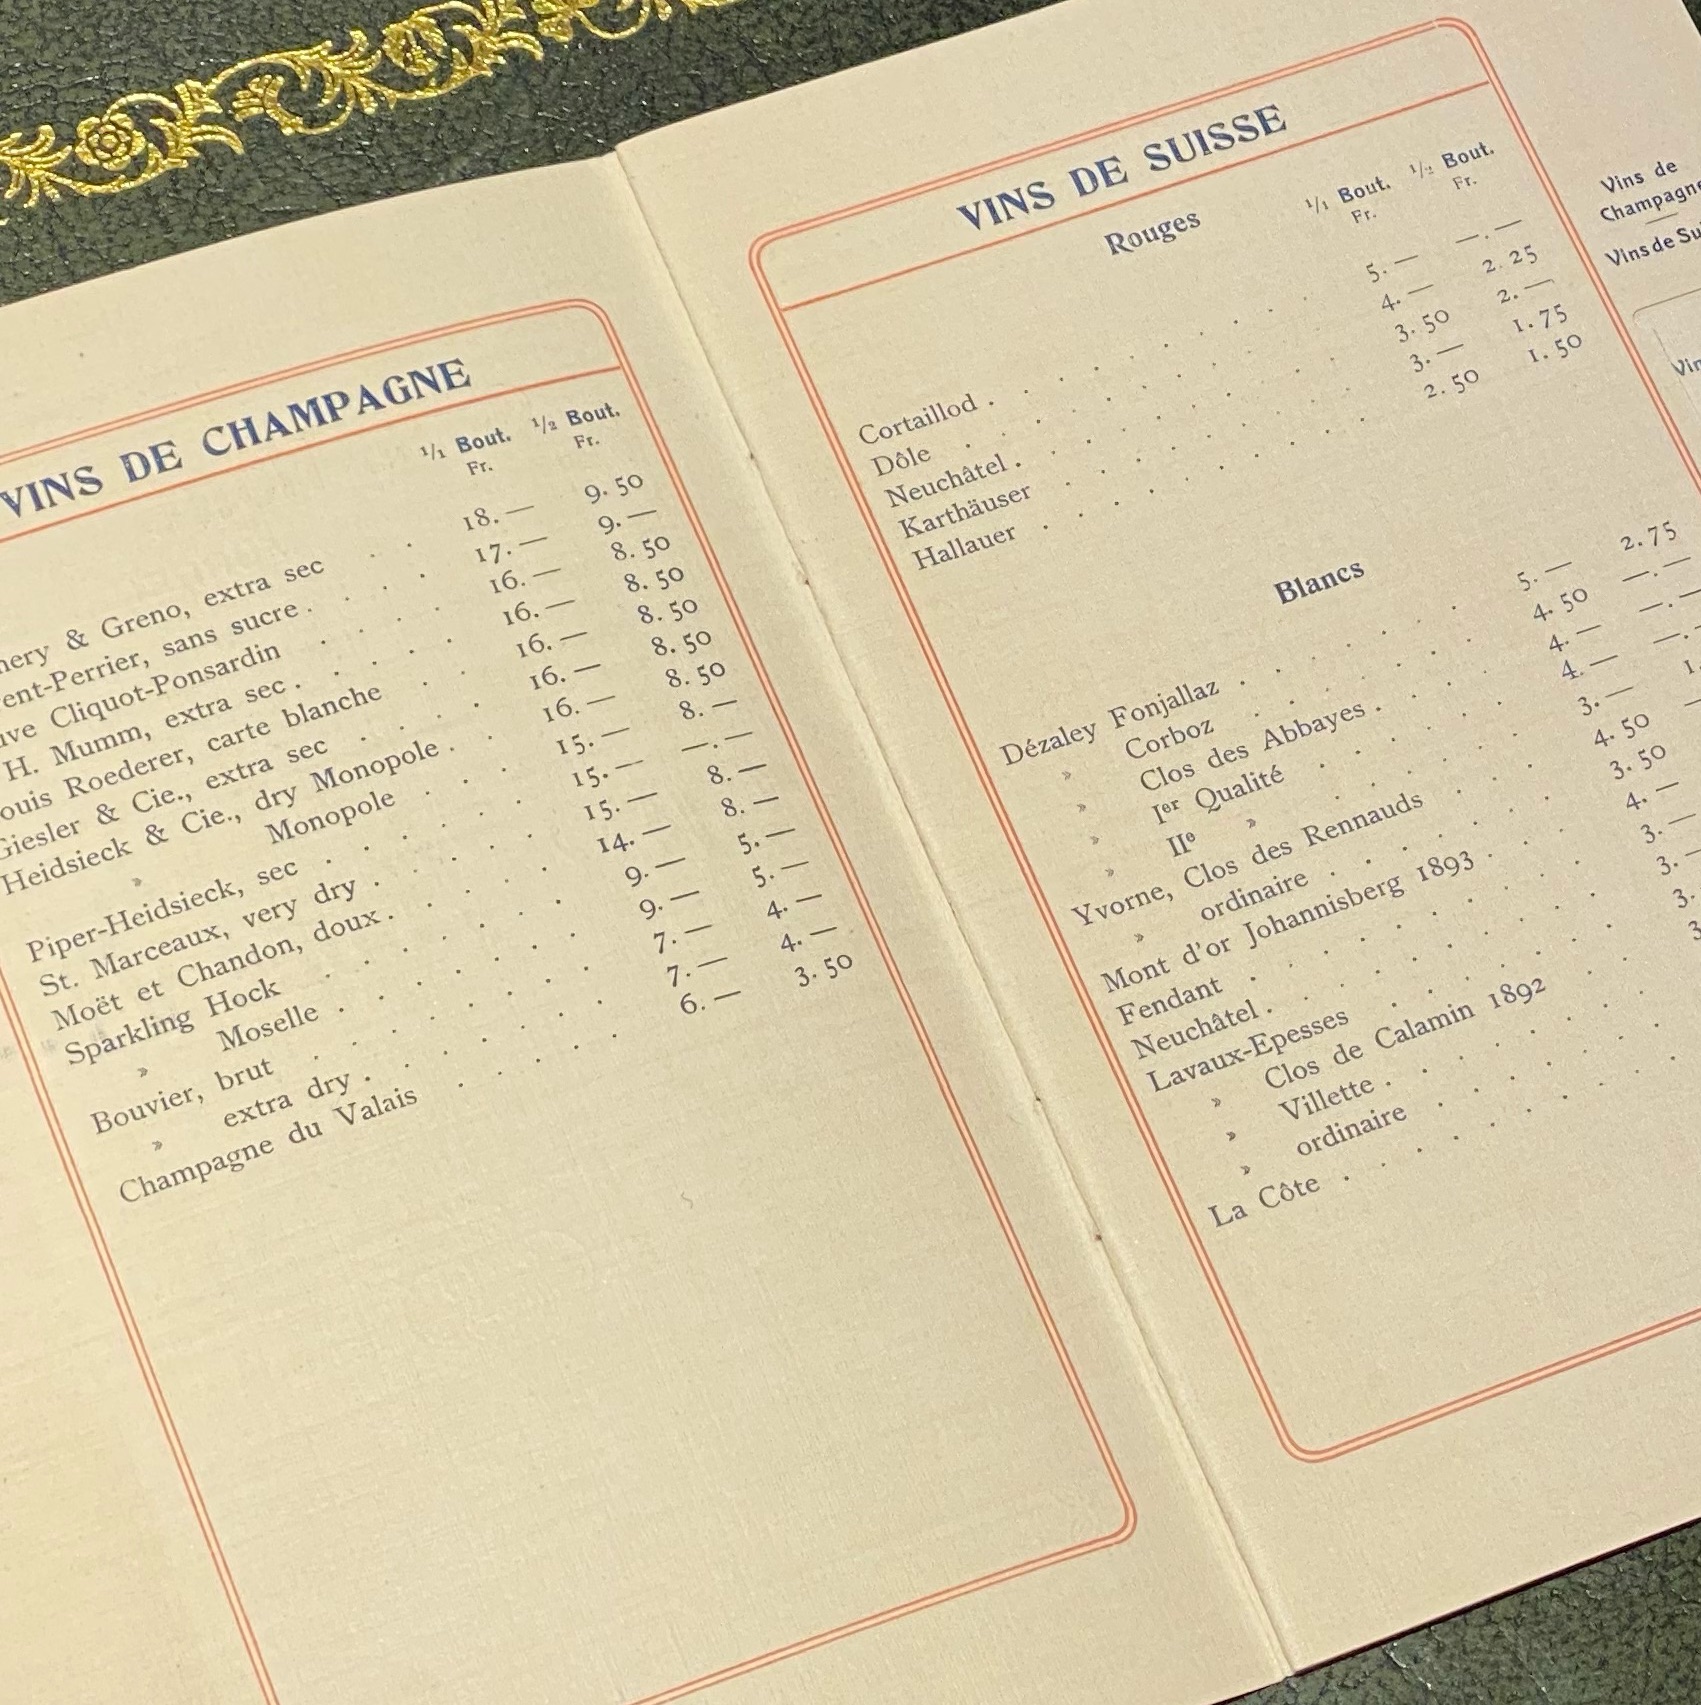 VINS DE CHAMPAGNE
1/1 Bout. 1/2 Bout.
Fr. Fr.
& Greno, extra sec . . 18.— 9.50
ent-Perrier, sans sucre . . . . 17.— 9.—
uve Cliquot-Ponsardin . . . 16.— 8.50
H. Mumm, extra sec . . . . 16.— 8.50
ouis Roederer, carte blanche . . 16.— 8.50
Giesler & Cie., extra sec . . . . 16.— 8.50
Heidsieck & Cie., dry Monopole . . 16.— 8.50
» Monopole . . . 15.— 8.—
Piper-Heidsieck, sec . . . . 15.— —.—
St. Marceaux, very dry . . . . 15.— 8.—
Moët et Chandon, doux . . . . 14.— 8.—
Sparkling Hock . . . . . 9.— 5.—
» Moselle . . . . . 9.— 5.—
Bouvier, brut . . . . . 7.— 4.—
» extra dry . . . . . 7.— 4.—
Champagne du Valais . . . . 6.— 3.50
VINS DE SUISSE
Rouges
1/1 Bout. 1/2 Bout.
Fr. Fr.
Cortaillod . . . . . . . . . 5.— —.—
Dôle . . . . . . . . . 4.— 2.25
Neuchâtel . . . . . . . . . 3.50 2.—
Karthäuser . . . . . . . . 3.— 1.75
Hallauer . . . . . . . . . 2.50 1.50
Blancs
Dézaley Fonjallaz . . . . . . 5.— 2.75
» Corboz . . . . . . . 4.50 —.—
» Clos des Abbayes . . . . 4.— —.—
» Ier Qualité . . . . . 4.— —.—
» IIe » . . . . . 3.— 1.
Yvorne, Clos des Rennauds . . . 4.50 —
» ordinaire . . . . . 3.50
Mont d'or Johannisberg 1893 . . . 4.—
Fendant . . . . . . . 3.—
Neuchâtel . . . . . . . 3.—
Lavaux-Epesses . . . . . . 3.
» Clos de Calamin 1892 . . 3
» Villette . . . . . .
» ordinaire . . . . .
La Côte . . . . . .
Vins de
Champagne
Vins de Sui
Vin